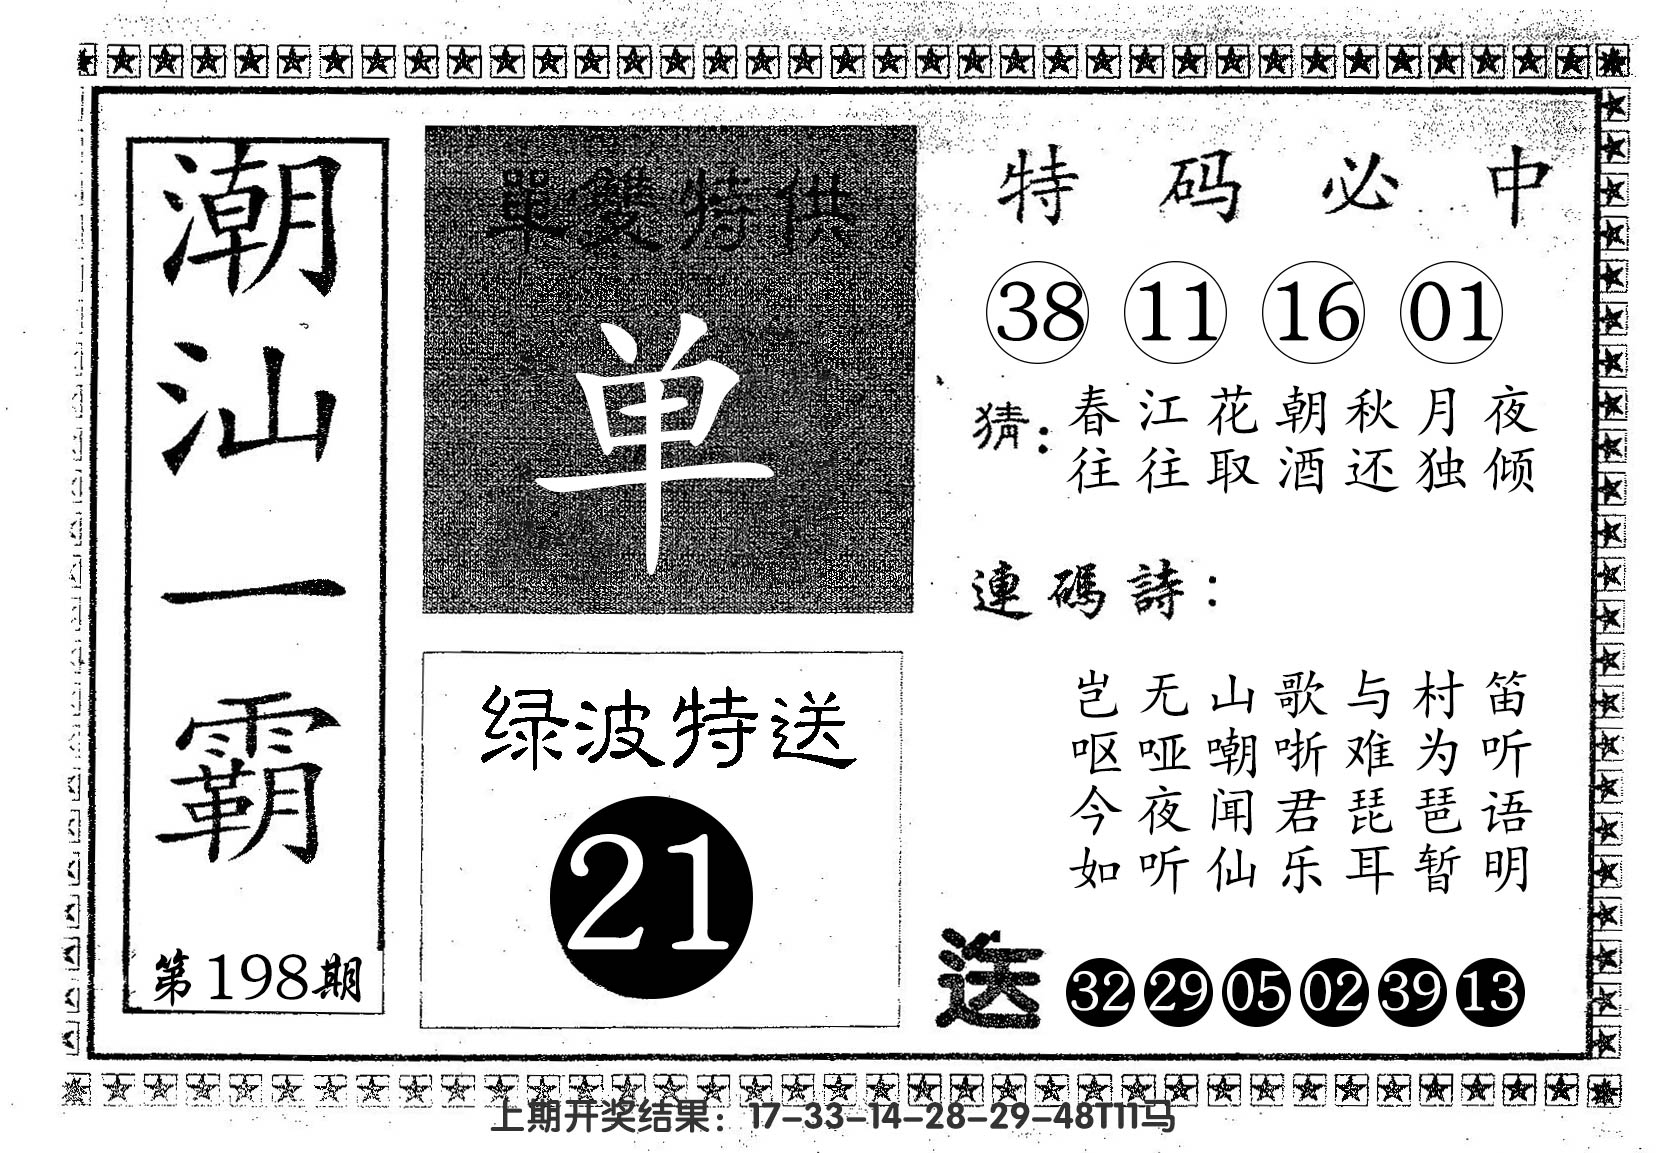 潮汕一霸
第198期
單雙特供
单
绿波特送
21
特码必中
38 11 16 01
猜：
春江花朝秋月夜
往往取酒还独倾
連碼詩：
岂无山歌与村笛
呕哑嘲哳难为听
今夜闻君琵琶语
如听仙乐耳暂明
送 32 29 05 02 39 13
上期开奖结果：17-33-14-28-29-48T11马